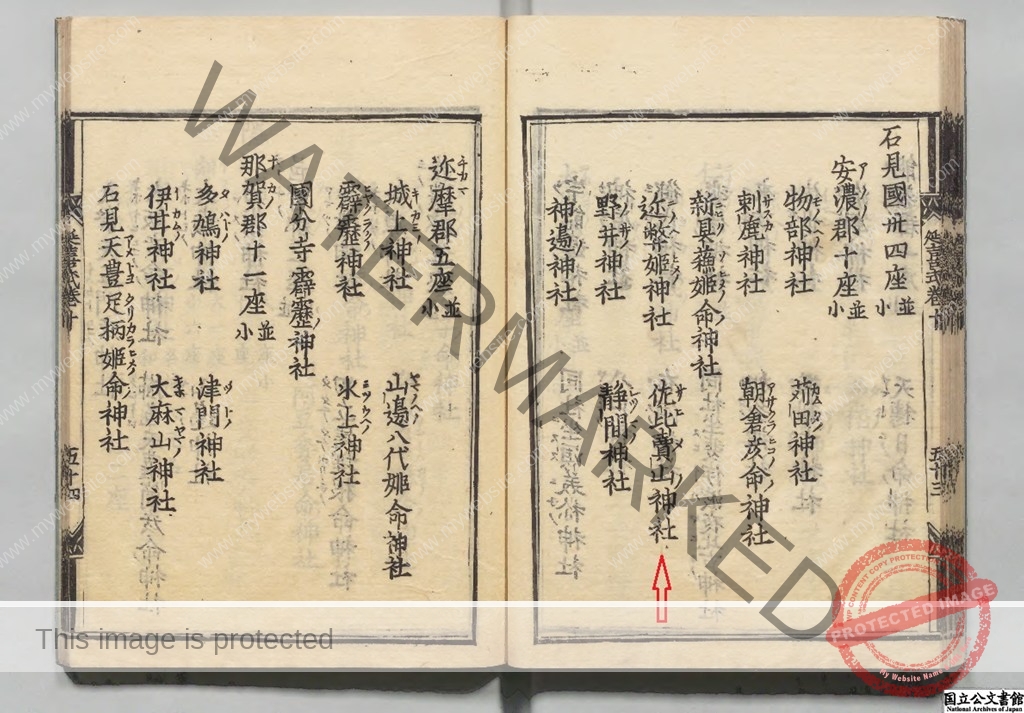 石見國丗四座並小
安濃郡十座並小
物部神社
苅田神社
刺鹿神社
朝倉彦命神社
新具蘓姫命神社
迩弊姫神社
佐比賣山神社
野井神社
静間神社
神邉神社
延喜式巻十
五十三
迩摩郡五座小
城上神社
山邉八代姫命神社
霹靂神社
水上神社
國分寺霹靂神社
那賀郡十一座並小
多鳩神社
津門神社
伊甘神社
大麻山神社
石見天豊足柄姫命神社
延喜式巻十
五十四
WATERMARKED
This image is protected
COPYRIGHT PROTECTED
PROTECTED IMAGE
My Website Name
国立公文書館
National Archives of Japan